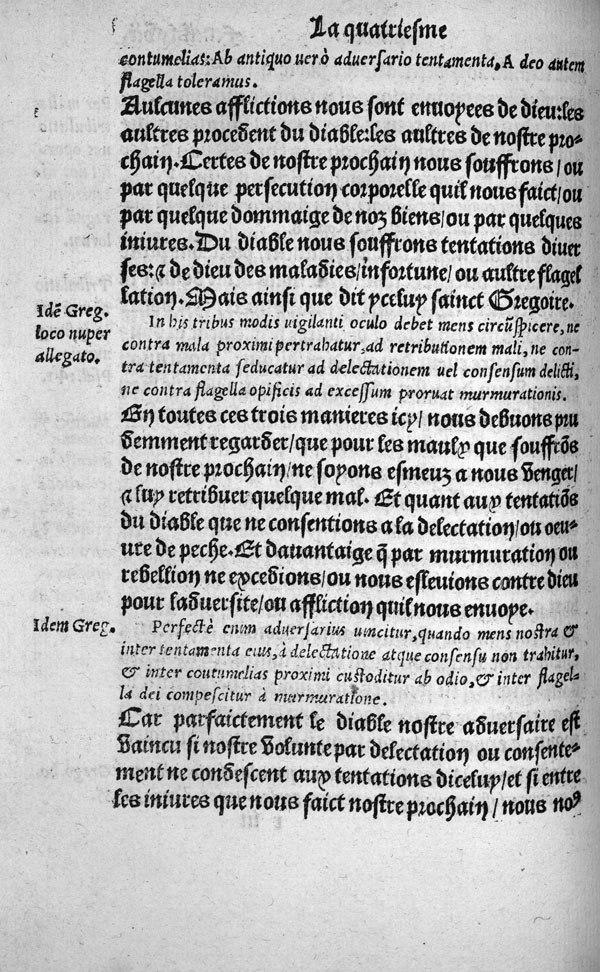 La quatriesme
contumelias: Ab antiquo uerò aduersario tentamenta, A deo autem
flagella toleramus.
Aulcunes afflictions nous sont enuoyees de dieu: les
aultres procedent du diable: les aultres de nostre pro-
chain. Certes de nostre prochain nous souffrons / ou
par quelque persecution corporelle quil nous faict / ou
par quelque dommaige de noz biens / ou par quelques
iniures. Du diable nous souffrons tentations diuer
ses: & de dieu des maladies / infortune / ou aultre flagel
lation. Mais ainsi que dit yceluy sainct Gregoire.
Idẽ Greg.
loco nuper
allegato.
In his tribus modis uigilanti oculo debet mens circũspicere, ne
contra mala proximi pertrahatur, ad retributionem mali, ne con-
tra tentamenta seducatur ad delectationem uel consensum delicti,
ne contra flagella opificis ad excessum proruat murmurationis.
En toutes ces trois manieres icy / nous debuons pru
demment regarder / que pour les maulx que souffrõs
de nostre prochain / ne soyons esmeuz a nous venger /
& luy retribuer quelque mal. Et quant aux tentatiõs
du diable que ne consentions a la delectation / ou oeu-
ure de peche. Et dauantaige q̃ par murmuration ou
rebellion ne excedions / ou nous esleuions contre dieu
pour laduersite / ou affliction quil nous enuoye.
Idem Greg.
Perfectè enim aduersarius uincitur, quando mens nostra &
inter tentamenta eius, à delectatione atque consensu non trahitur,
& inter contumelias proximi custoditur ab odio, & inter flagel-
la dei compescitur à murmuratione.
Car parfaictement le diable nostre aduersaire est
vaincu si nostre volunte par delectation ou consente-
ment ne condescent aux tentations diceluy / et si entre
les iniures que nous faict nostre prochain / nous noꝰ